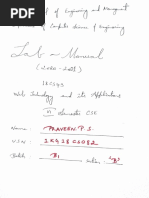 of Engineering and Management
of Computer Science & Engineering
Lab - Manual
(2020-2021)
18CS63
Web Technology and its Applications
VI Semester CSE
Name PRAVEEN. P. S.
U.S.N 1CG18CS082
Batch B1 section "B"